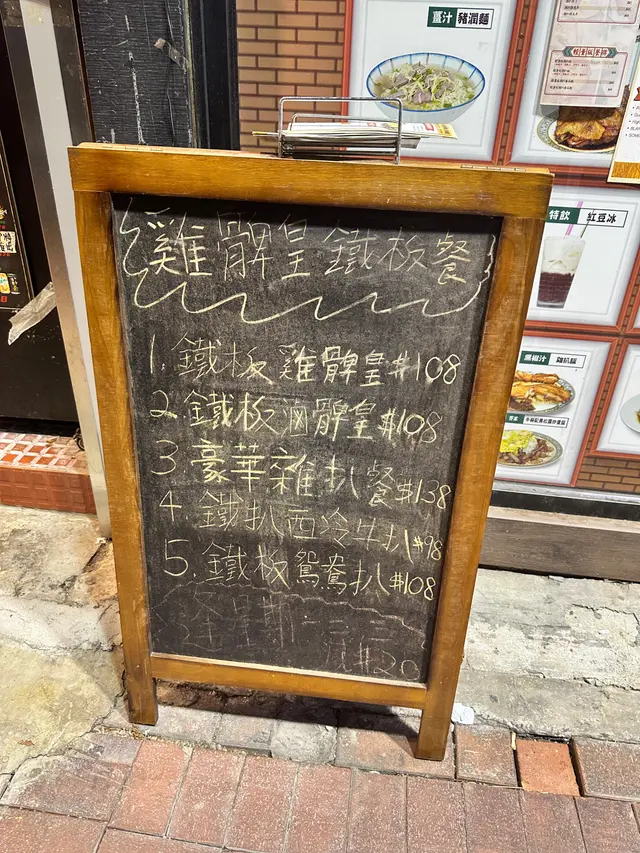 薑汁 豬潤麵
特飲 紅豆冰
黑椒汁 雞扒飯
雞髀皇鐵板餐
1. 鐵板雞髀皇$108
2. 鐵板滷髀皇$108
3 豪華雜扒餐$138
4 鐵扒西冷牛扒$98
5. 鐵板鴛鴦扒$108
逢星期一二三
減$20